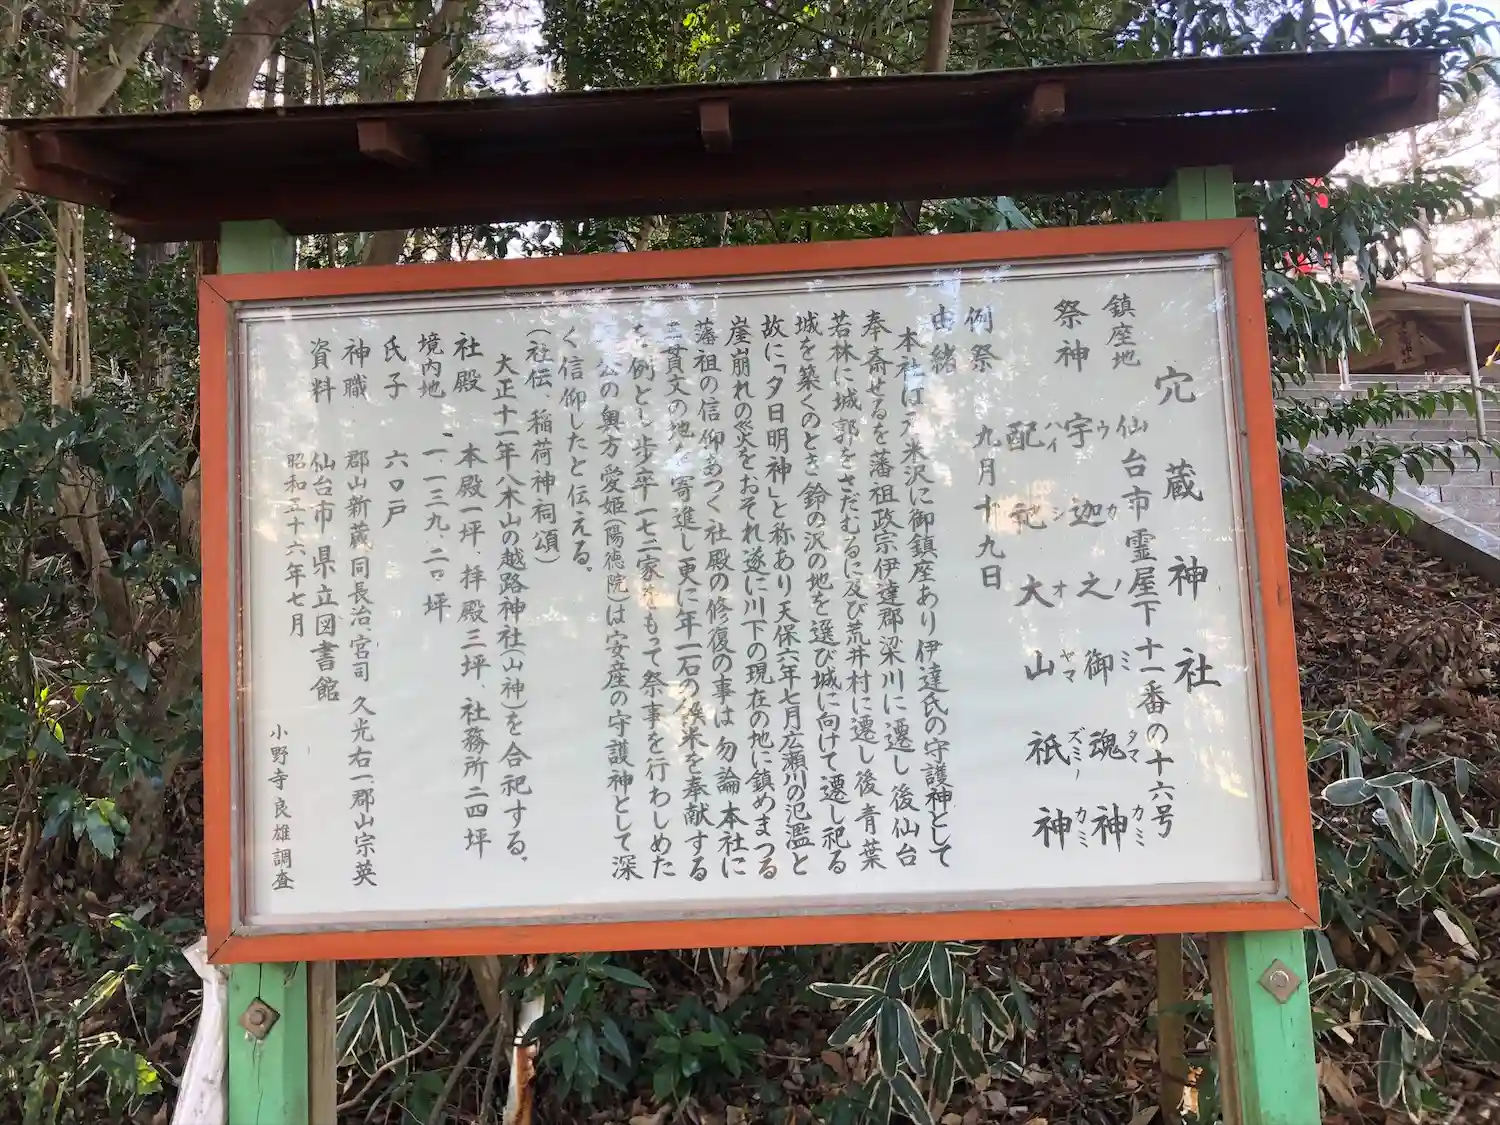 穴蔵神社
鎮座地 仙台市霊屋下十一番の十六号
祭神 宇迦之御魂神
ウカノミタマカミ
配祀 大山祇神
ハイシ オヤマズミノカミ
例祭 九月十九日
由緒
本社は元米沢に御鎮座あり伊達氏の守護神として
奉斎せるを藩祖政宗伊達郡梁川に遷し後仙台
若林に城郭をさだむるに及び荒井村に遷し後青葉
城を築くのとき鈴の沢の地を選び城に向けて遷し祀る
故に「夕日明神」と称あり天保六年七月広瀬川の氾濫と
崖崩れの災をおそれ遂に川下の現在の地に鎮めまつる
藩祖の信仰あつく社殿の修復の事は勿論本社に
貫文の地を寄進し更に年一石の米を奉献する
を例とし歩卒一七二家をもって祭事を行わしめた
公の奥方愛姫(陽徳院)は安産の守護神として深
く信仰したと伝える。
(社伝、稲荷神祠頌)
大正十一年八木山の越路神社(山神)を合祀する。
社殿 本殿一坪、拝殿三坪、社務所二四坪
境内地 一、一三九、二〇坪
氏子 六〇戸
神職 郡山新蔵 同長治 宮司 久光右一 郡山宗英
資料 仙台市 県立図書館
昭和五十六年七月
小野寺良雄調査